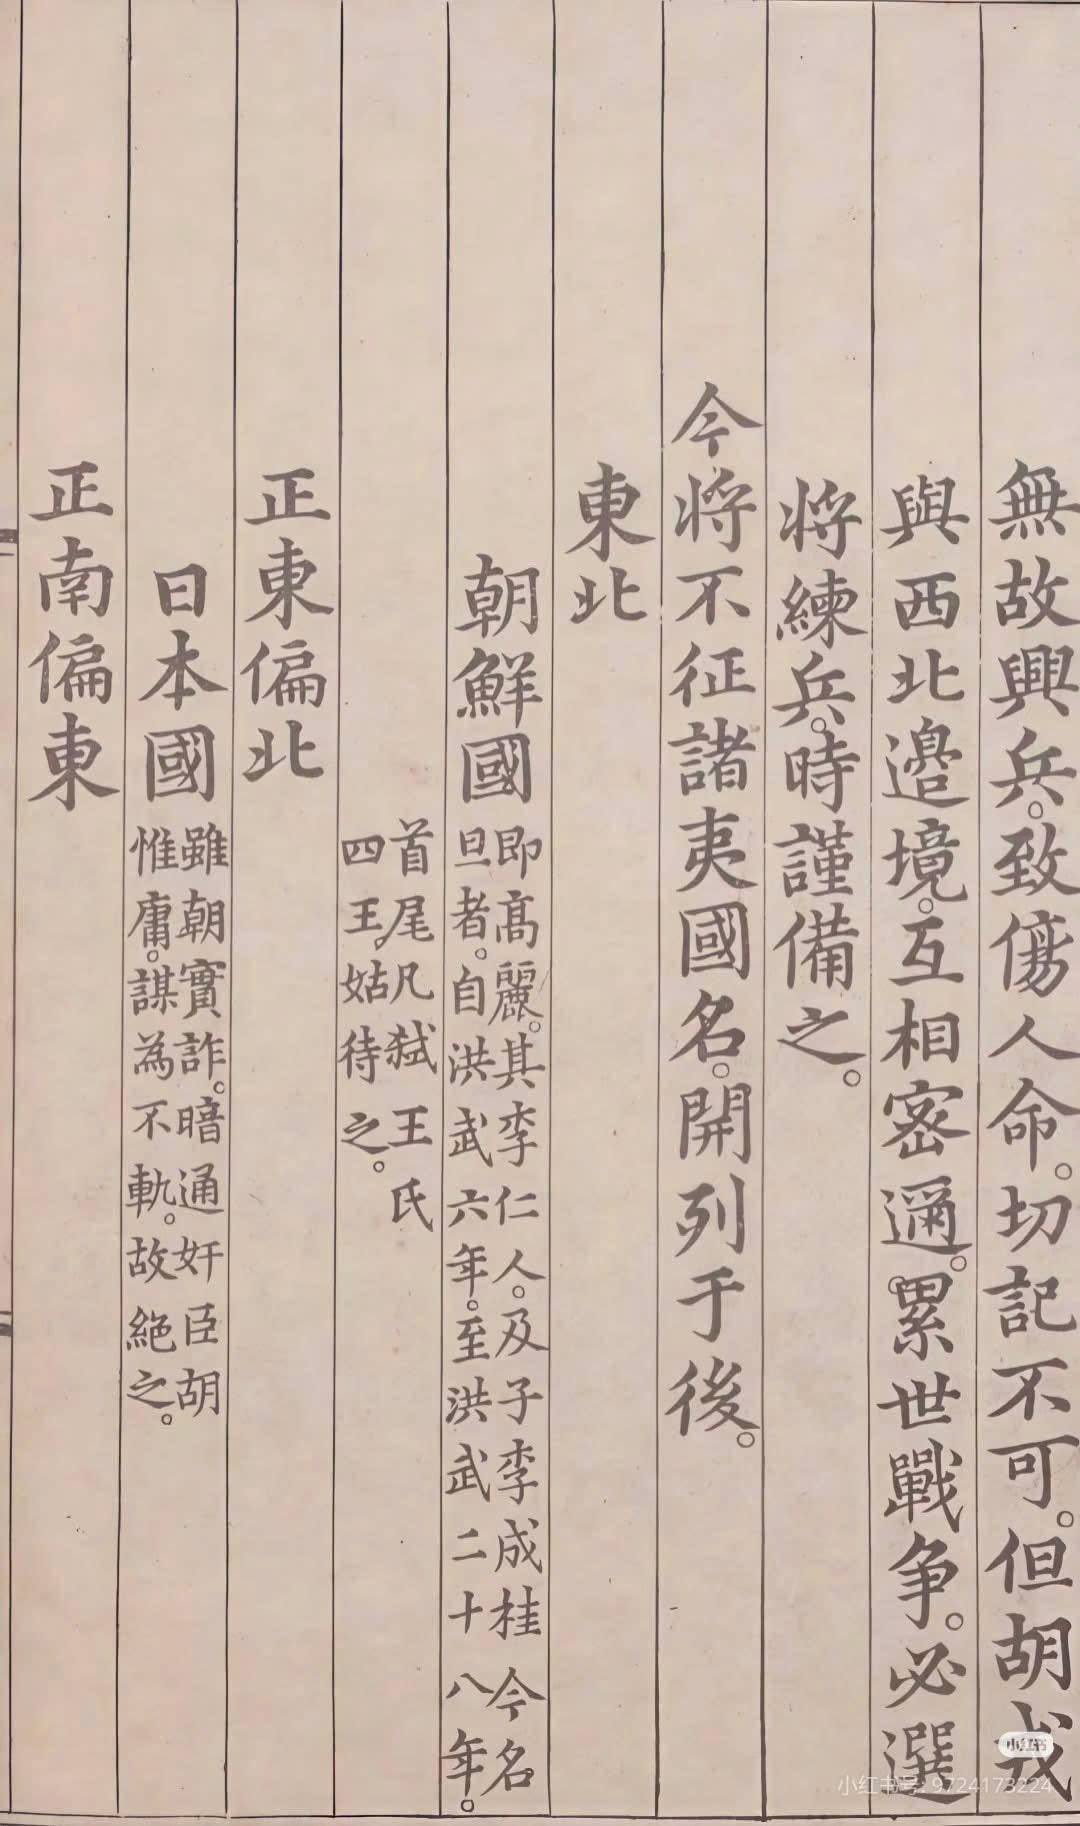 無故興兵。致傷人命。切記不可。但胡戎
與西北邊境。互相密邇。累世戰爭。必選
將練兵。時謹備之。
今將不征諸夷國名。開列于後。
東北
朝鮮國
即高麗。其李仁人。及子李成桂今名
旦者。自洪武六年。至洪武二十八年。
首尾凡弒王氏
四王。姑待之。
正東偏北
日本國
雖朝實詐。暗通奸臣胡
惟庸。謀為不軌。故絕之。
正南偏東
小红书
小红书号: 9724173224